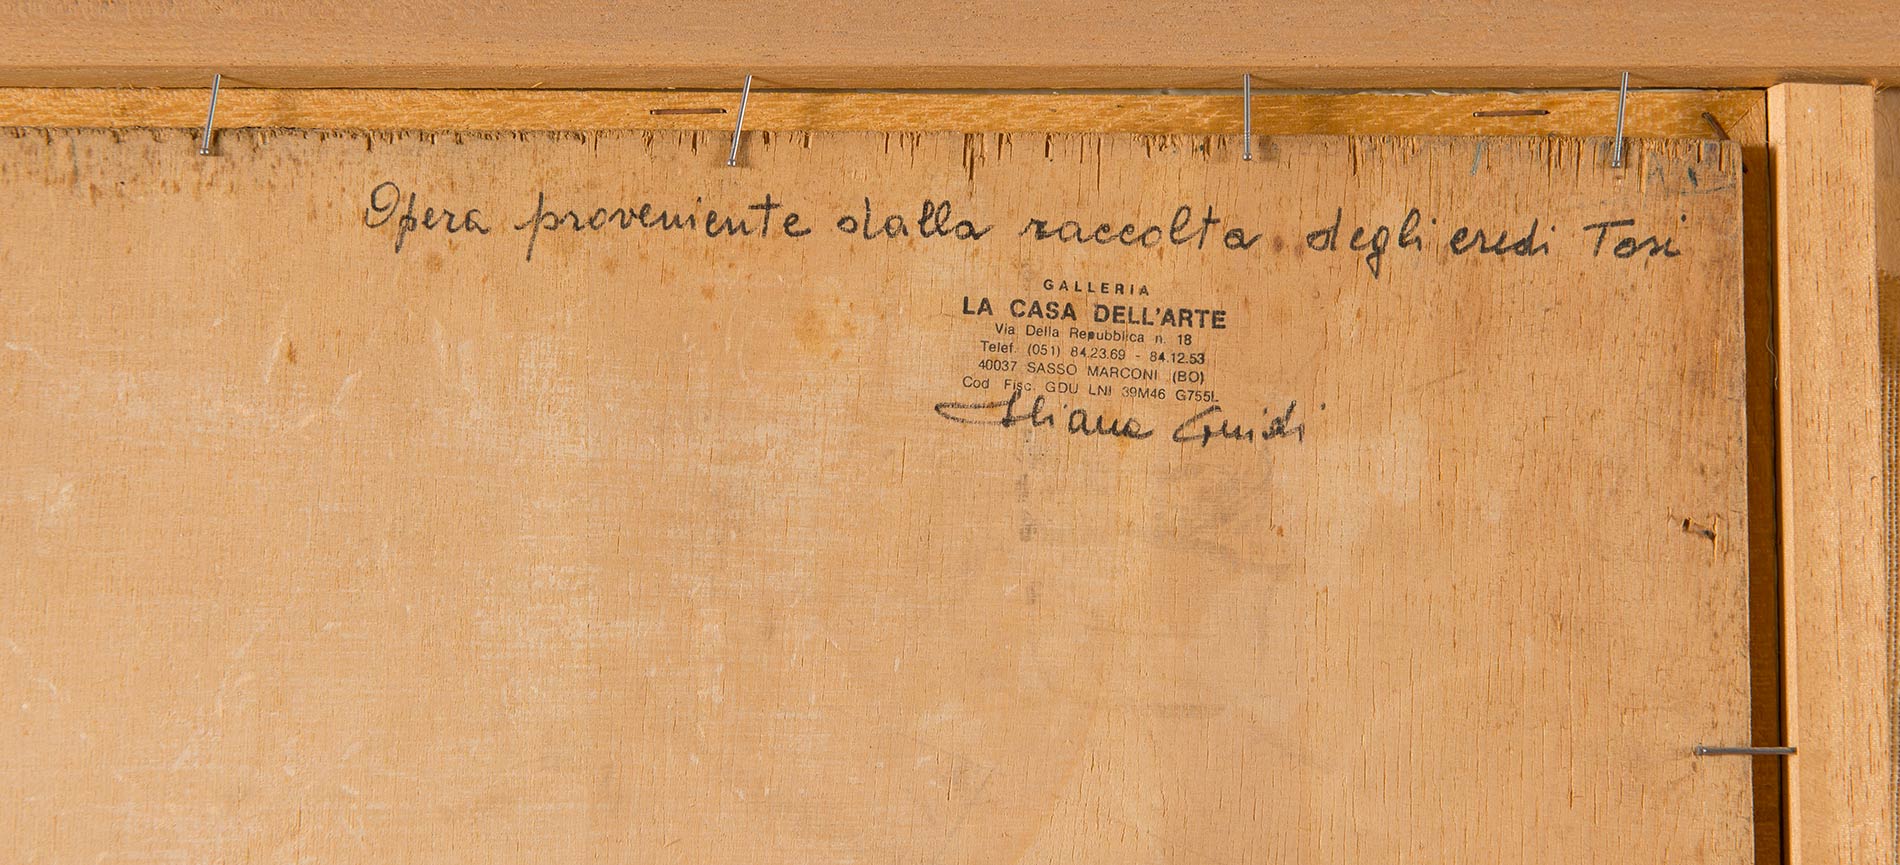 Opera proveniente dalla raccolta degli eredi Tosi
GALLERIA
LA CASA DELL'ARTE
Via Della Repubblica n. 18
Telef. (051) 84.23.69 - 84.12.53
40037 SASSO MARCONI (BO)
Cod. Fisc. GDU LNI 39M46 G755L
Iliana Guidi